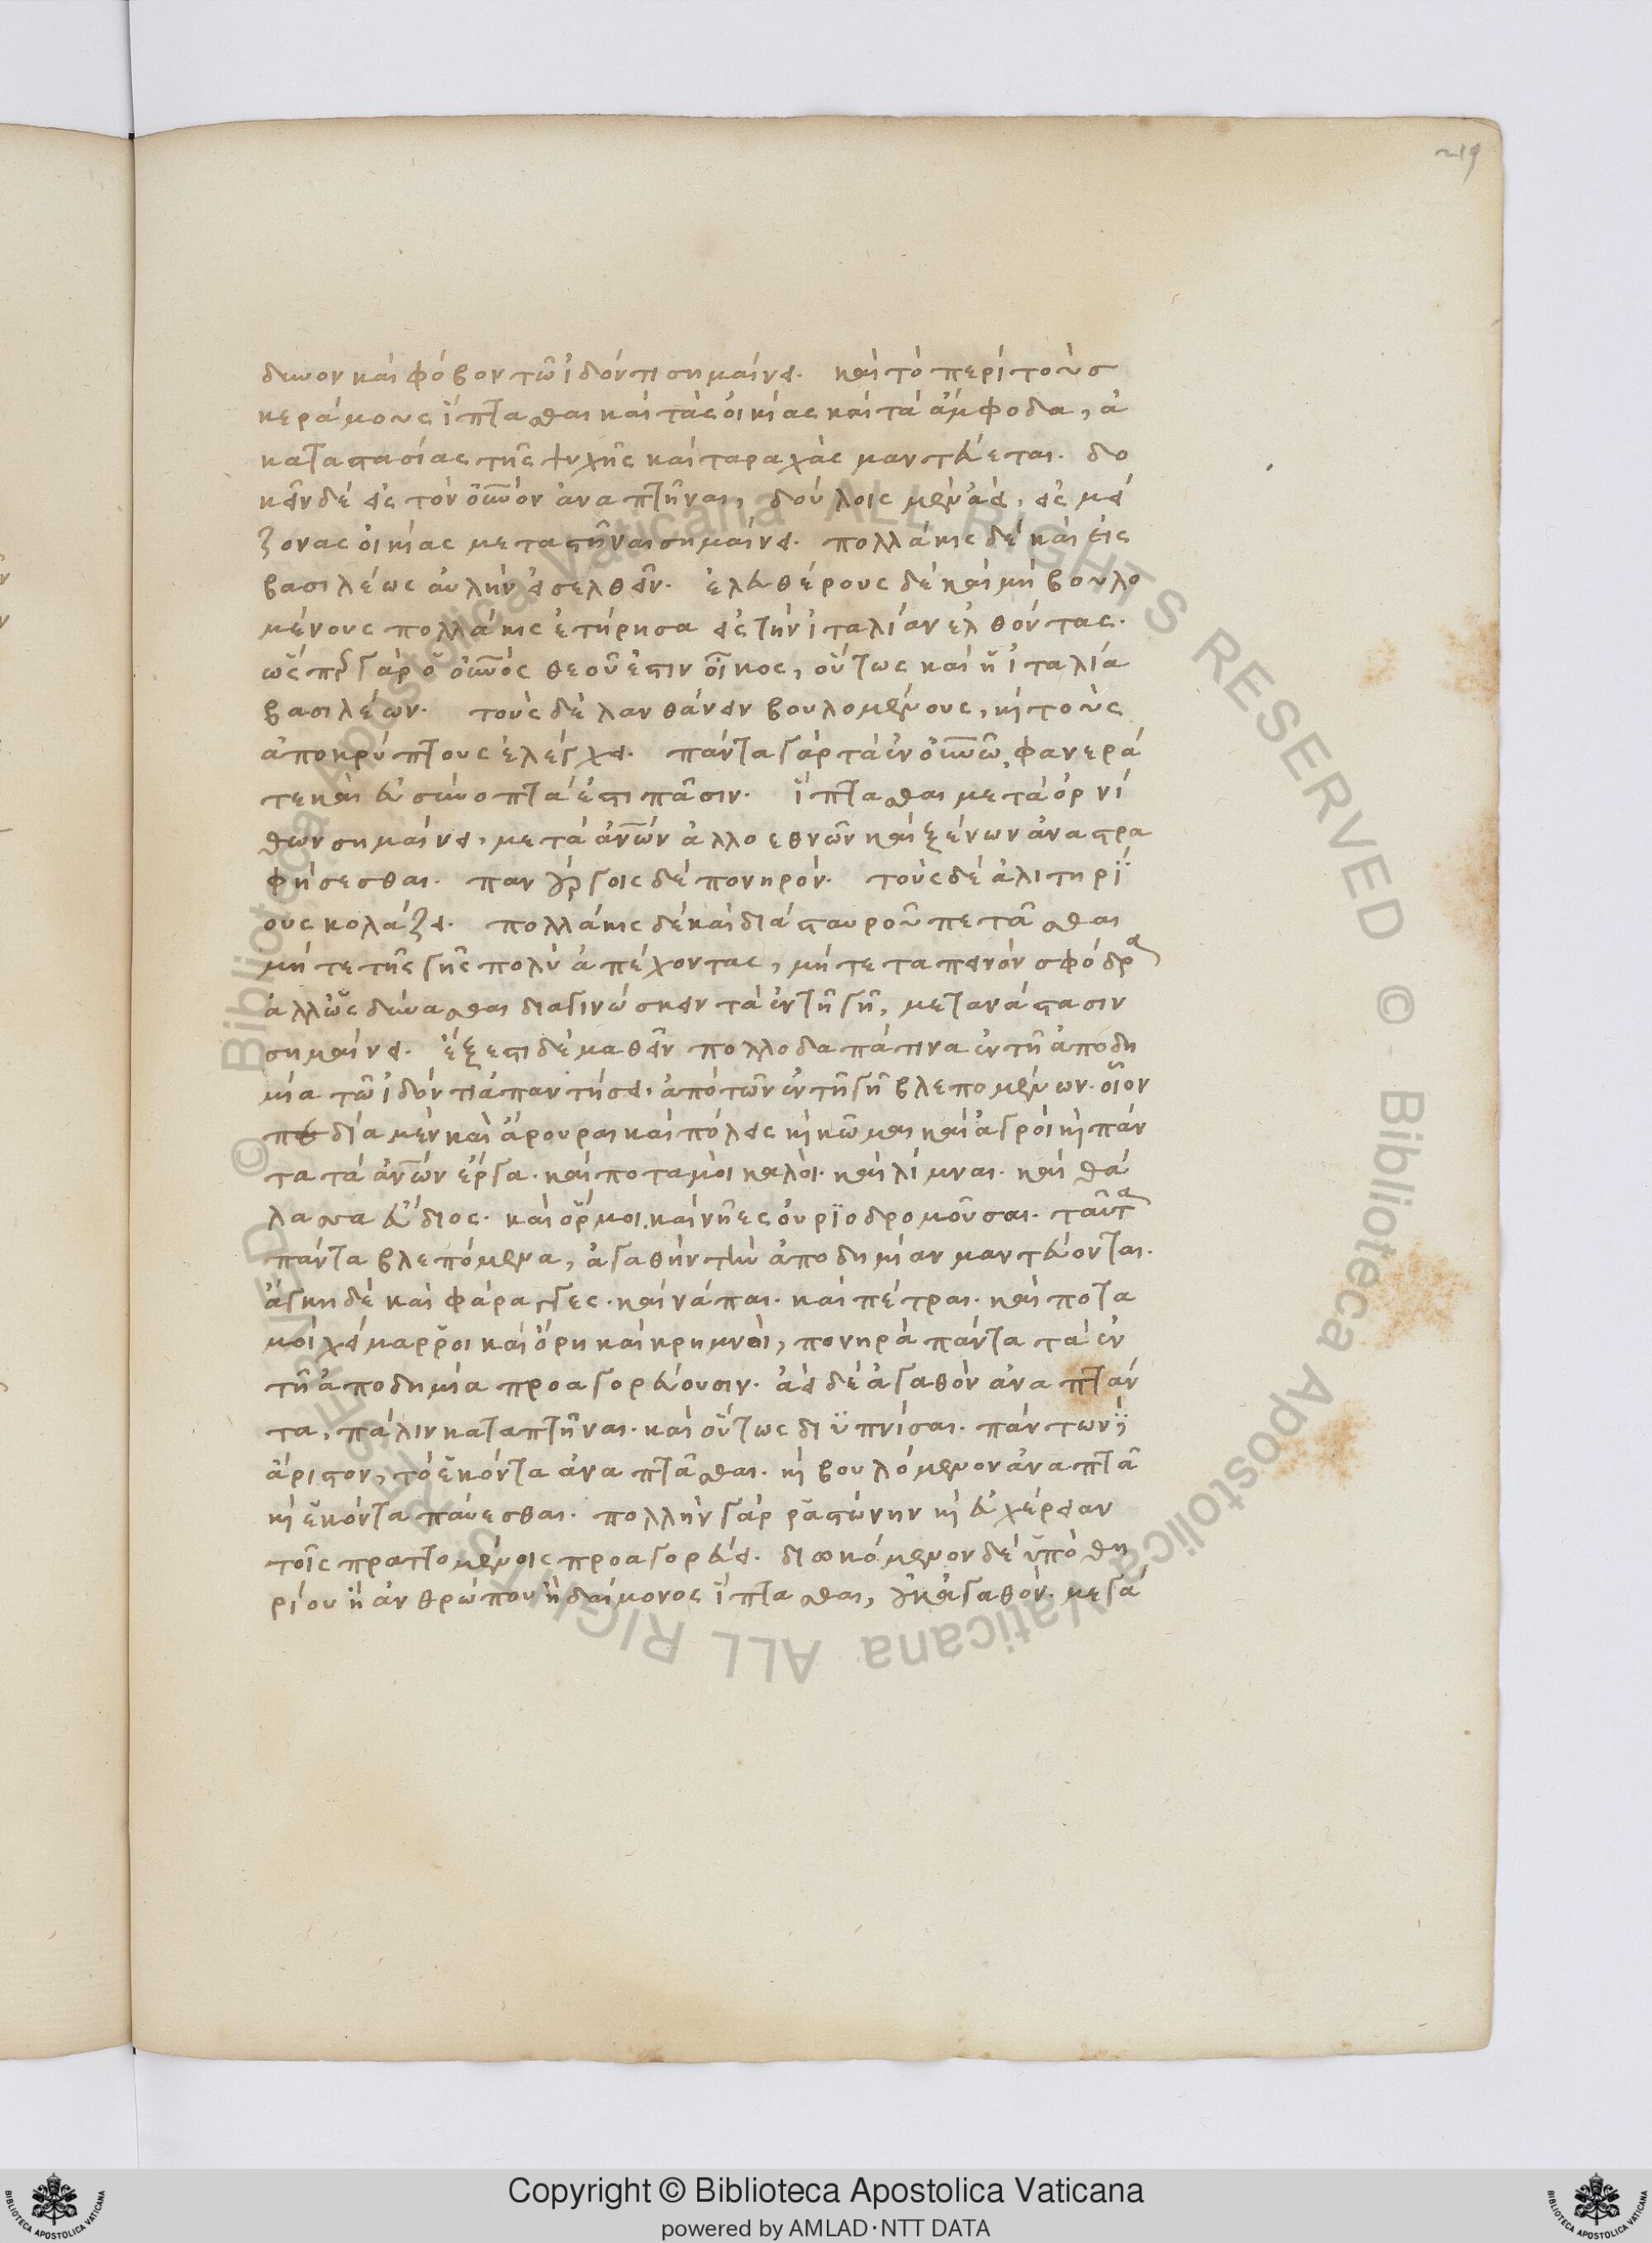 219
δεινον καὶ φόβον τῶ ἰδόντι σημαίνει. καὶ τὸ περὶ τοὺς
κεράμους ἵπτασθαι καὶ τὰς οἰκίας καὶ τὰ ἄμφοδα, ἀ
καταστασίας τῆς ψυχῆς καὶ ταραχὰς μαντεύεται. δο
κεῖν δὲ εἰς τὸν οὐνὸν ἀναπτῆναι, δούλοις μὲν ἀεὶ, εἰς μεί
ζονας οἰκίας μεταστῆναι σημαίνει. πολλάκις δὲ καὶ εἰς
βασιλέως αὐλὴν εἰσελθεῖν. ἐλευθέρους δὲ καὶ μὴ βουλο
μένους πολλάκις ἐτήρησα εἰς τὴν ἰταλίαν ἐλθόντας.
ὥσπερ γὰρ ὁ οὐνὸς θεοῦ ἐστιν οἶκος, οὕτως καὶ ἡ ἰταλία
βασιλέων. τοὺς δὲ λανθάνειν βουλομένους, κὴ τοὺς
ἀποκρύπτους ἐλέγχει. πάντα γὰρ τὰ ἐν οὐνῶ, φανερά
τε καὶ εὐσύνοπτα ἐστι πᾶσιν. ἵπτασθαι μετὰ ὀρνί
θων σημαίνει, μετὰ ἀνῶν ἀλλοεθνῶν καὶ ξένων ἀναστρα
φήσεσθαι. πανούργοις δὲ πονηρόν. τοὺς δὲ ἀλιτηρΐ
ους κολάζει. πολλάκις δὲ καὶ διὰ σταυροῦ πετᾶσθαι
μήτε τῆς γῆς πολὺ ἀπέχοντας, μήτε ταπεινὸν σφόδρα
ἀλλ' ὡς δύνασθαι διαγινώσκειν τὰ ἐν τῆ γῆ, μετανάστασιν
σημαίνει. ἔξεστι δὲ μαθεῖν πολλοδαπά τινα ἐν τῆ ἀποδη
μία τῶ ἰδόντι ἀπαντήσει. ἀπὸ τῶν ἐν τῆ γῆ βλεπομένων. οἷον
πεδία μὲν καὶ ἄρουραι καὶ πόλεις κὴ κῶμαι καὶ ἀγροὶ κὴ πάν
τα τὰ ἀνῶν ἔργα. καὶ ποταμοὶ καλοὶ. καὶ λίμναι. καὶ θά
λασσα εὔδιος. καὶ ὅρμοι. καὶ νῆες οὐρϊοδρομοῦσαι. ταῦτα
πάντα βλεπόμενα, ἀγαθὴν τὴν ἀποδημίαν μαντεύονται.
ἄγκη δὲ καὶ φάραγγες. καὶ νάπαι. καὶ πέτραι. καὶ ποτα
μοὶ χείμαρροι καὶ ὄρη καὶ κρημνοὶ, πονηρὰ πάντα τὰ ἐν
τῆ ἀποδημία προαγορεύουσιν. ἀεὶ δὲ ἀγαθὸν ἀναπτάν
τα, πάλιν καταπτῆναι. καὶ οὕτως διϋπνίσαι. πάντων ϊ
ἄριστον, τὸ ἑκόντα ἀναπτᾶσθαι. κὴ βουλόμενον ἀναπτᾶ
κὴ ἑκόντα παύεσθαι. πολλὴν γὰρ ῥᾳστώνην κὴ εὐχέρειαν
τοῖς πραττομένοις προαγορεύει. διωκόμενον δὲ ὑπὸ θη
ρίου ἢ ἀνθρώπου ἢ δαίμονος ἵπτασθαι, οὐκ ἀγαθόν. μεγά
Copyright © Biblioteca Apostolica Vaticana
powered by AMLAD·NTT DATA